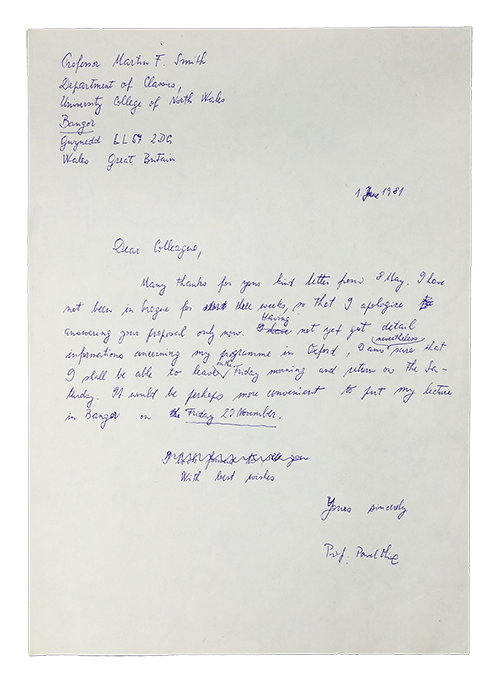 Professor Martin F. Smith
Department of Classics,
University College of North Wales
Bangor
Gwynedd LL57 2DG
Wales Great Britain
1 June 1981
Dear Colleague,
Many thanks for your kind letter from 8 May. I have
not been in Prague for three weeks, so that I apologize
answering your proposal only now. Having not yet got detail
informations concerning my programme in Oxford, I am nevertheless sure that
I shall be able to leave in the Friday morning and return on the Sa-
turday. It would be perhaps more convenient to put my lecture
in Bangor on the Friday 20 November.
With best wishes
Yours sincerely
Prof. Pavel